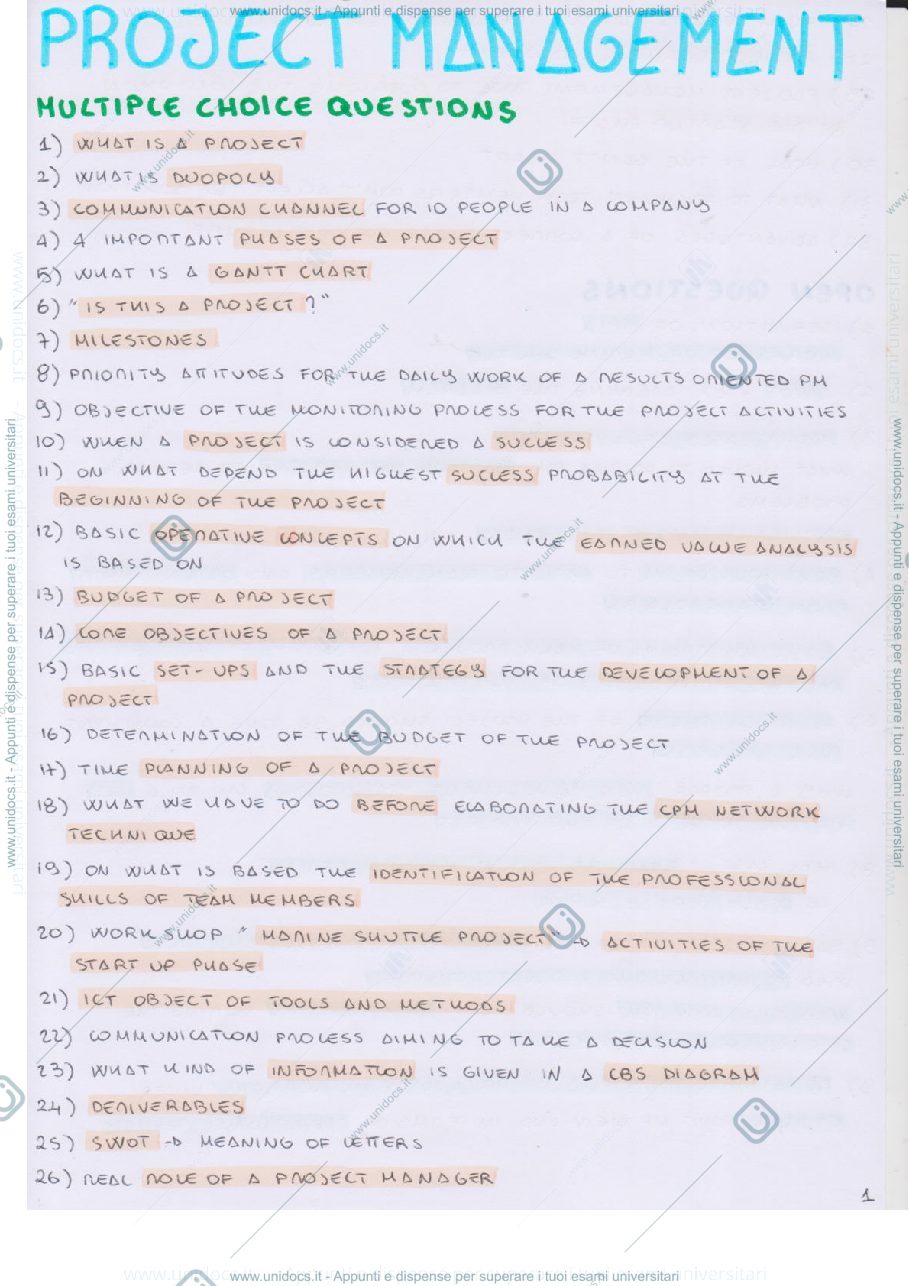 www.unidocs.it - Appunti e dispense per superare i tuoi esami universitari
PROJECT MANAGEMENT
MULTIPLE CHOICE QUESTIONS
1) WHAT IS A PROJECT
2) WHAT IS DUOPOLY
3) COMMUNICATION CHANNEL FOR 10 PEOPLE IN A COMPANY
4) 4 IMPORTANT PHASES OF A PROJECT
5) WHAT IS A GANTT CHART
6) "IS THIS A PROJECT?"
7) MILESTONES
8) PRIORITY ATITUDES FOR THE DAILY WORK OF A RESULTS ORIENTED PM
9) OBJECTIVE OF THE MONITORING PROCESS FOR THE PROJECT ACTIVITIES
10) WHEN A PROJECT IS CONSIDERED A SUCCESS
11) ON WHAT DEPEND THE HIGHEST SUCCESS PROBABILITY AT THE
BEGINNING OF THE PROJECT
12) BASIC OPERATIVE CONCEPTS ON WHICH THE EARNED VALUE ANALYSIS
IS BASED ON
13) BUDGET OF A PROJECT
14) CORE OBJECTIVES OF A PROJECT
15) BASIC SET-UPS AND THE STRATEGY FOR THE DEVELOPMENT OF A
PROJECT
16) DETERMINATION OF THE BUDGET OF THE PROJECT
17) TIME PLANNING OF A PROJECT
18) WHAT WE HAVE TO DO BEFORE ELABORATING THE CPM NETWORK
TECHNIQUE
19) ON WHAT IS BASED THE IDENTIFICATION OF THE PROFESSIONAL
SKILLS OF TEAM MEMBERS
20) WORKSHOP "MARINE SHUTTLE PROJECT" → ACTIVITIES OF THE
START UP PHASE
21) ICT OBJECT OF TOOLS AND METHODS
22) COMMUNICATION PROCESS AIMING TO TAKE A DECISION
23) WHAT KIND OF INFORMATION IS GIVEN IN A CBS DIAGRAM
24) DERIVERABLES
25) SWOT → MEANING OF LETTERS
26) REAL ROLE OF A PROJECT MANAGER
1
www.unidocs.it - Appunti e dispense per superare i tuoi esami universitari